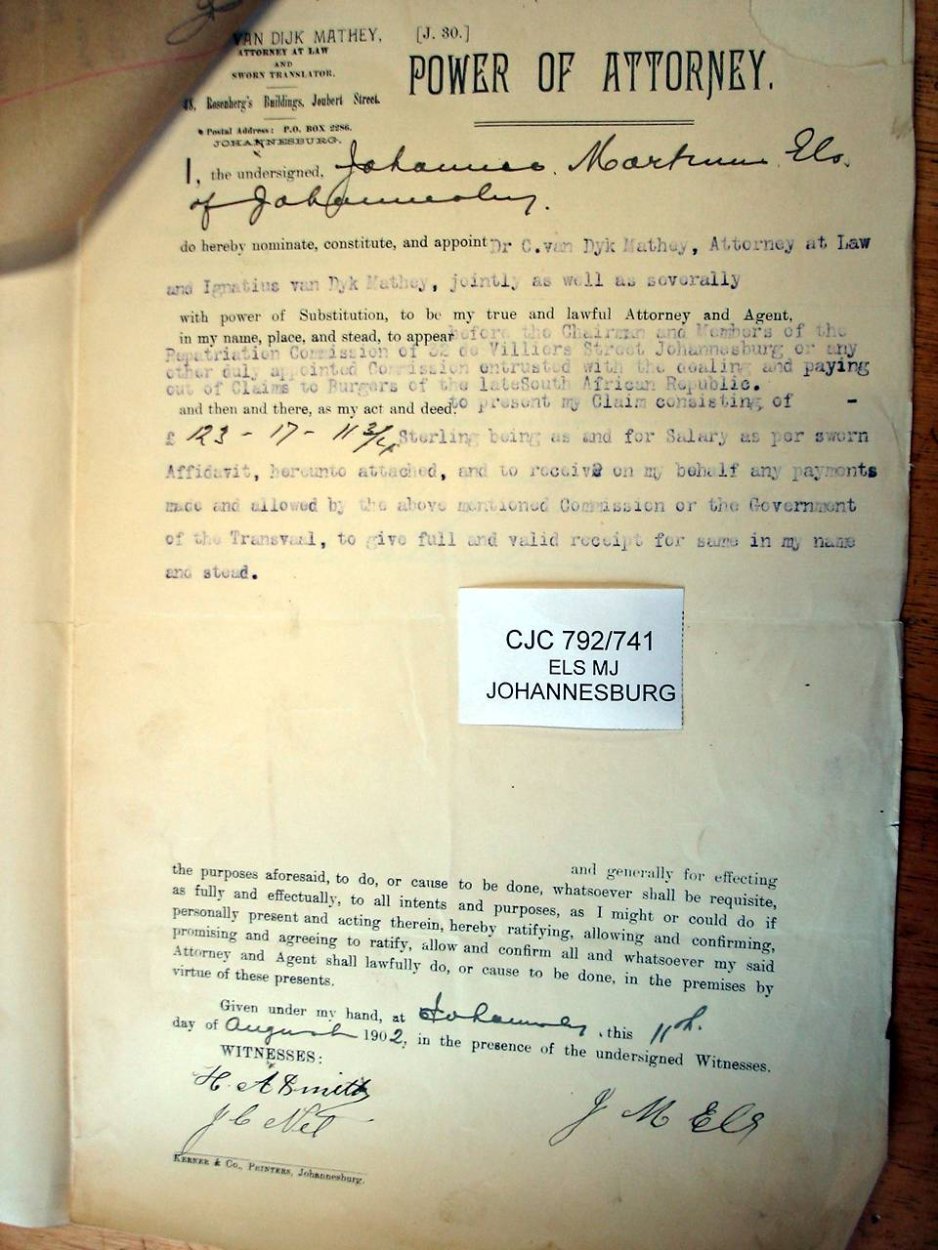 VAN DIJK MATHEY,
ATTORNEY AT LAW
AND
SWORN TRANSLATOR.
Rosenberg's Buildings, Joubert Street.
Postal Address: P.O. BOX 2286.
JOHANNESBURG.
[J. 30.]
POWER OF ATTORNEY.
I, the undersigned, Johannes Martinus Els.
of Johannesburg.
do hereby nominate, constitute, and appoint Dr C.van Dyk Mathey, Attorney at Law
and Ignatius van Dyk Mathey, jointly as well as severally
with power of Substitution, to be my true and lawful Attorney and Agent,
in my name, place, and stead, to appear before the Chairman and Members of the
Repatriation Commission of de Villiers Street Johannesburg or any
other duly appointed Commission entrusted with the dealing and paying
out of Claims to Burgers of the lateSouth African Republic.
and then and there, as my act and deed, to present my Claim consisting of -
£ 123 - 17 - 11 3/4 Sterling being as and for Salary as per sworn
Affidavit, hereunto attached, and to receive on my behalf any payments
made and allowed by the above mentioned Commission or the Government
of the Transvaal, to give full and valid receipt for same in my name
and stead.
CJC 792/741
ELS MJ
JOHANNESBURG
and generally for effecting
the purposes aforesaid, to do, or cause to be done, whatsoever shall be requisite,
as fully and effectually, to all intents and purposes, as I might or could do if
personally present and acting therein, hereby ratifying, allowing and confirming,
promising and agreeing to ratify, allow and confirm all and whatsoever my said
Attorney and Agent shall lawfully do, or cause to be done, in the premises by
virtue of these presents.
Given under my hand, at Johannesburg, this 11th.
day of August 1902, in the presence of the undersigned Witnesses.
WITNESSES:
H. A Smith
J C Nel
J M Els
KERNER & CO., PRINTERS, Johannesburg.